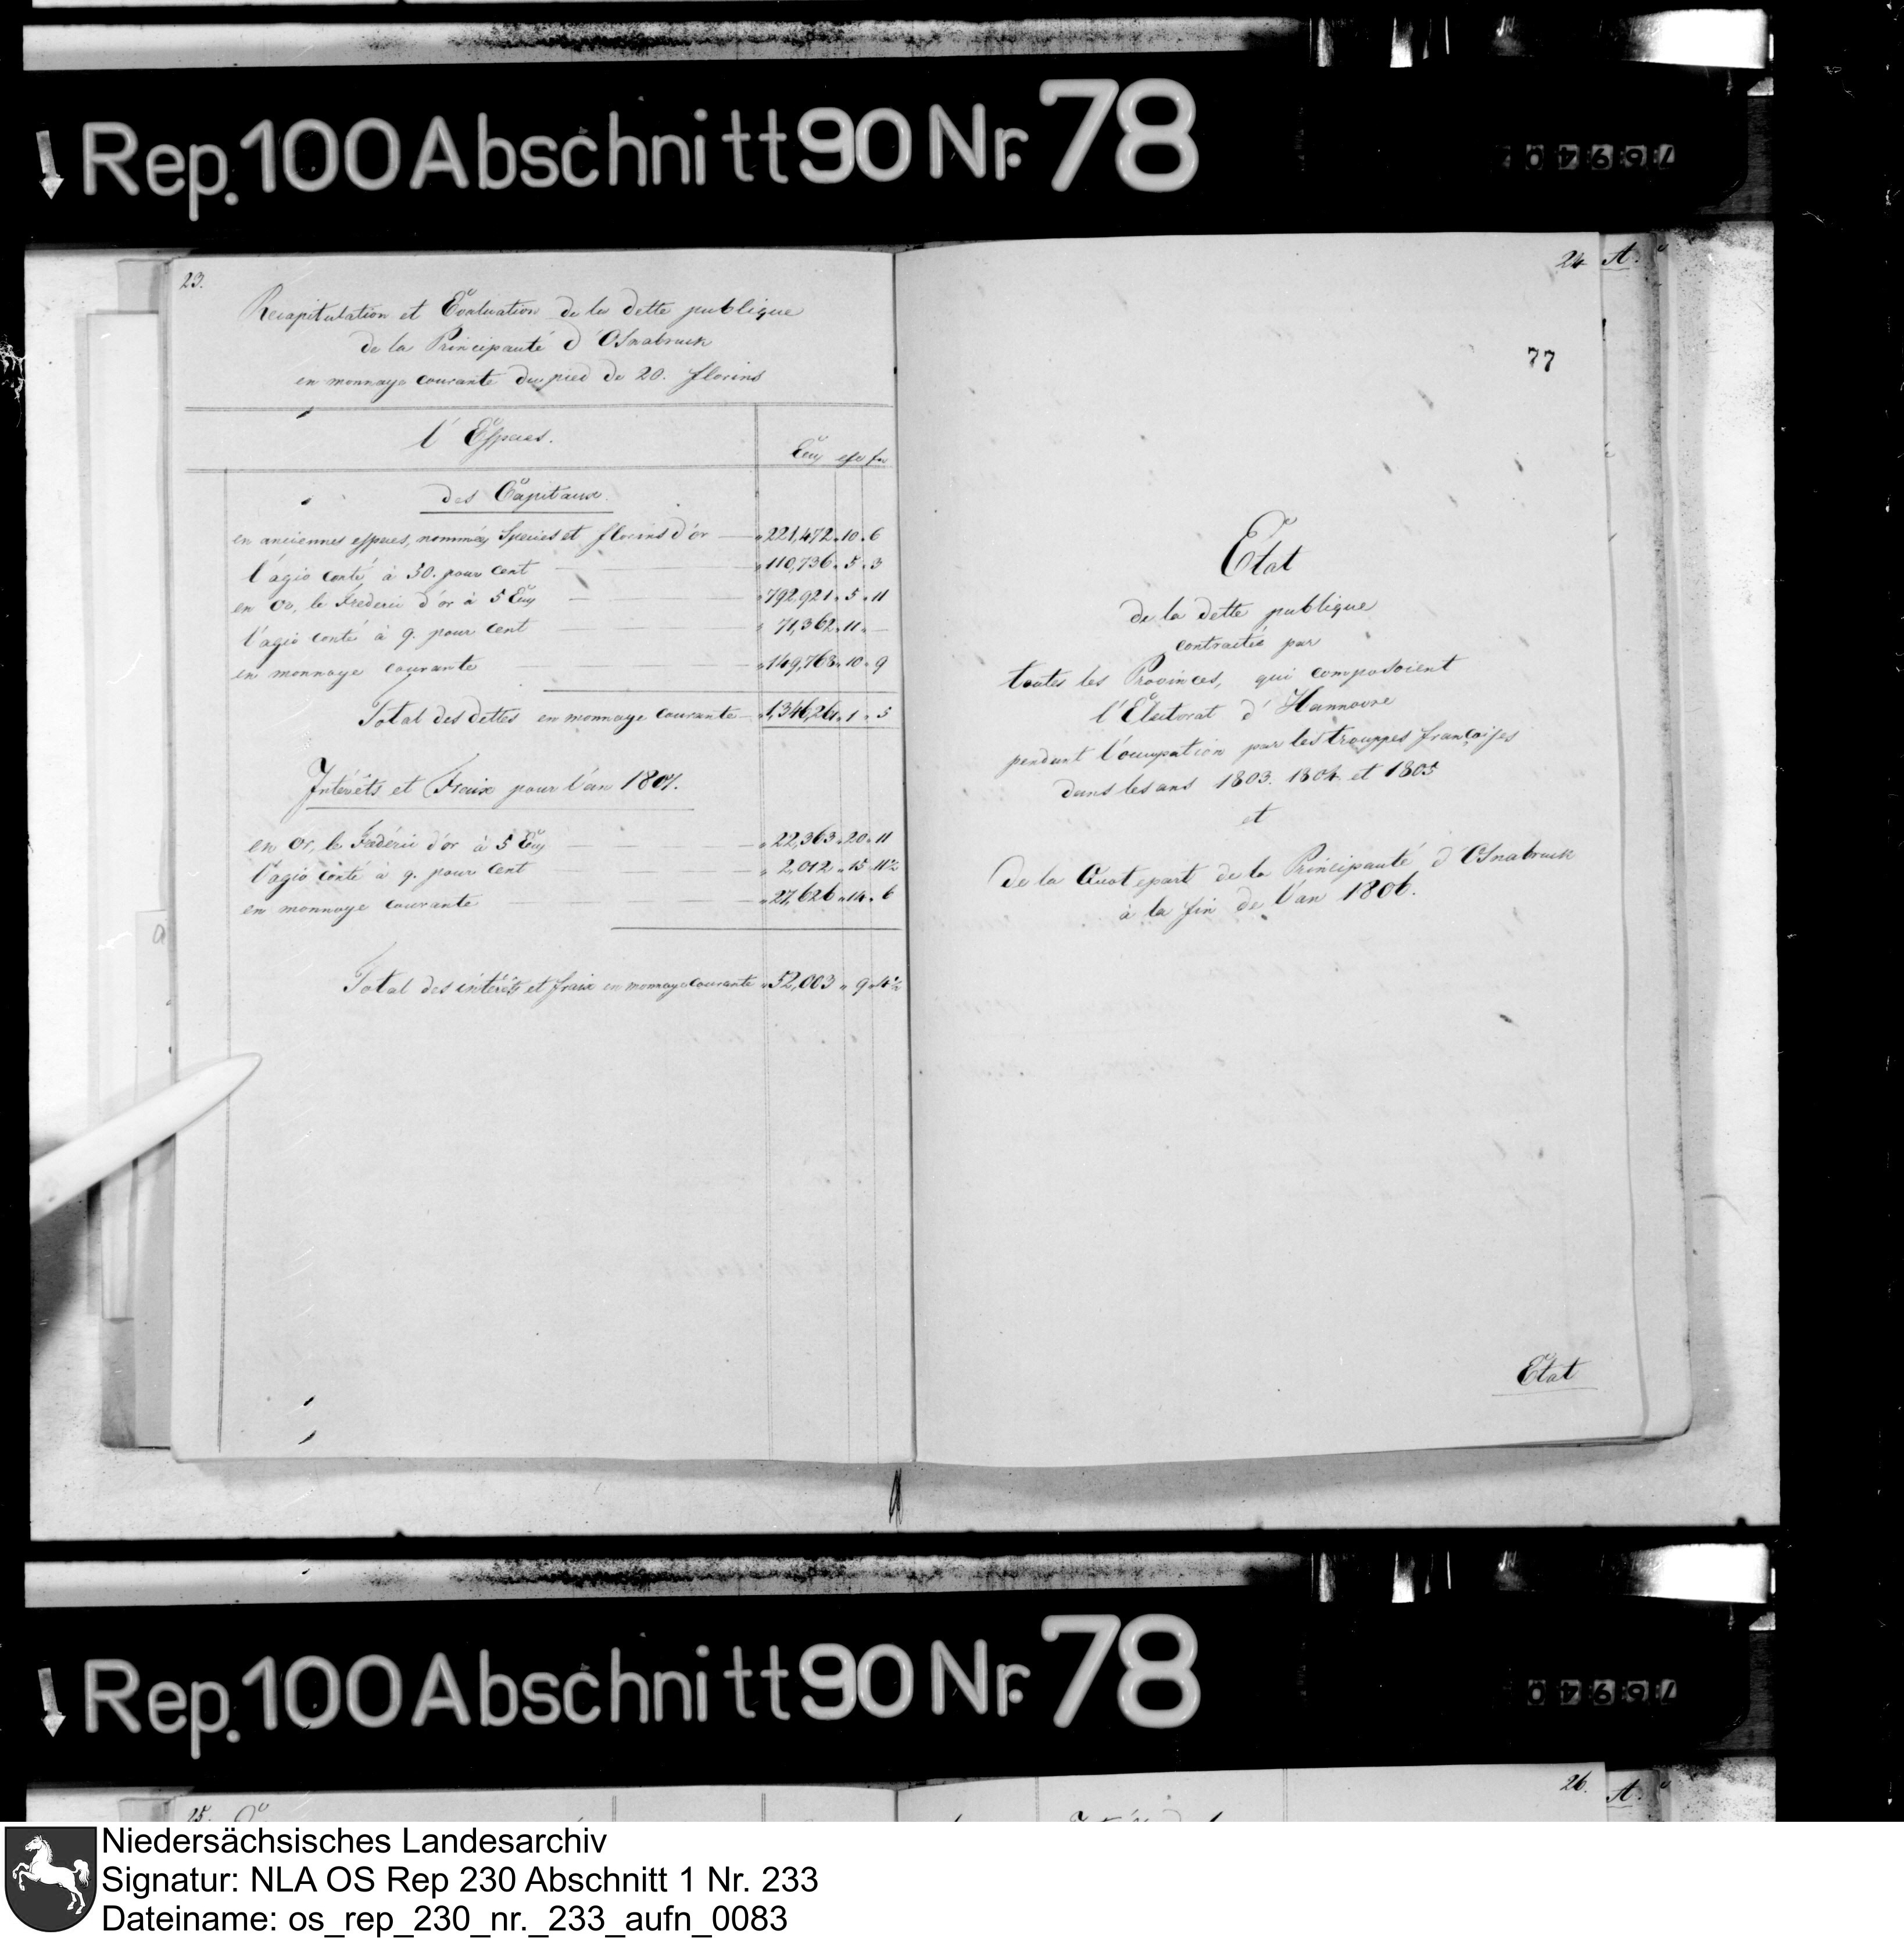 Rep. 100 Abschnitt 90 Nr. 78
23.
Recapitulation et Evaluation de la dette publique
de la Principauté d'Osnabruck
en monnaye courante du pied de 20. florins
l'Especes.
des Capitaux.
en anciennes especes, nommés Species et florins d'or — 221,472 „ 10 „ 6
l'agio conté à 50. pour cent — 110,736 „ 5 „ 3
en Or, le Frederic d'or à 5 — 792,921 „ 5 „ 11
l'agio conté à 9. pour cent — 71,362 „ 11 „ —
en monnaye courante — 149,768 „ 10 „ 9
Total des dettes en monnaye courante — 1,346,261 „ 1 „ 5
Intérêts et Fraix pour l'an 1807.
en Or, le Fréderic d'or à 5 — 22,363 „ 20 „ 11
l'agio conté à 9. pour cent — 2,012 „ 15 „ 11½
en monnaye courante — 27,626 „ 14 „ 6
Total des intérêts et fraix en monnaye courante „ 52,003 „ 9 „ 4½
24 A.
77
Etat
de la dette publique
contractée par
toutes les Provinces, qui composoient
l'Electorat d'Hannovre
pendant l'occupation par les trouppes françaises
dans les ans 1803. 1804 et 1805
et
de la Quotepart de la Principauté d'Osnabruck
à la fin de l'an 1806.
Etat
Rep. 100 Abschnitt 90 Nr. 78
25.
26. A.
Niedersächsisches Landesarchiv
Signatur: NLA OS Rep 230 Abschnitt 1 Nr. 233
Dateiname: os_rep_230_nr._233_aufn_0083